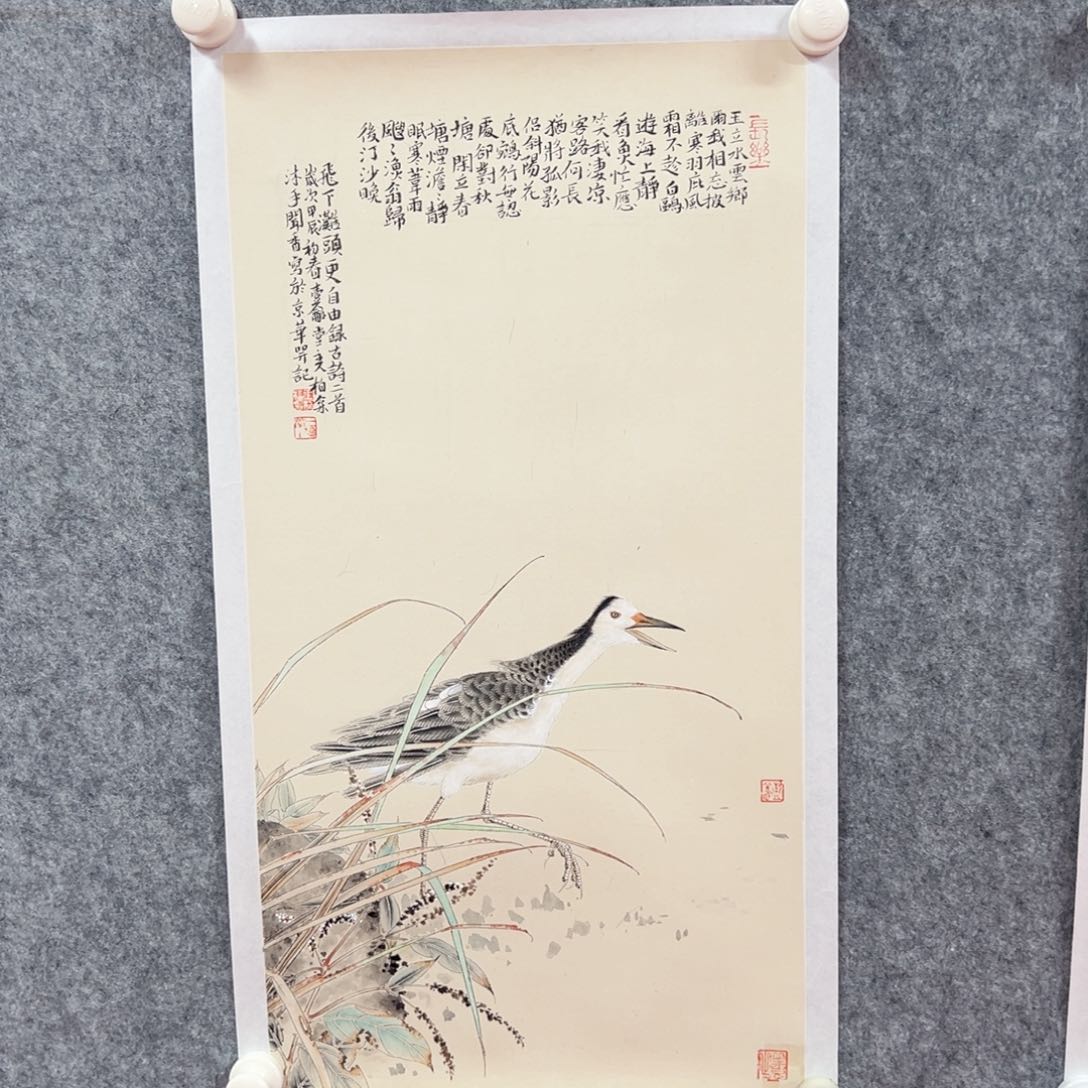 玉立水雲鄉
爾我相忘披
離寒羽庇風
霜不趁白鷗
遊海上靜
看魚忙應
笑我淒涼
客路何長
猶將孤影
侶斜陽花
底鵷行無認
處卻對秋
塘閑立春
塘煙澹澹靜
眠寒葦雨
颼颼漁翁歸
後汀沙晚
飛下灘頭更自由錄古詩二首
歲次甲辰初春
沐手聞香寫於京華並記